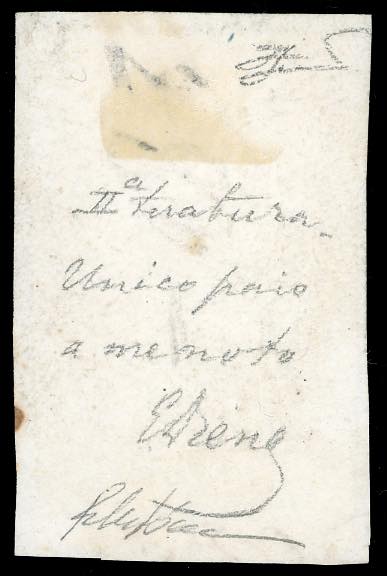 IIª tiratura.
Unico paio
a me noto
EDiena